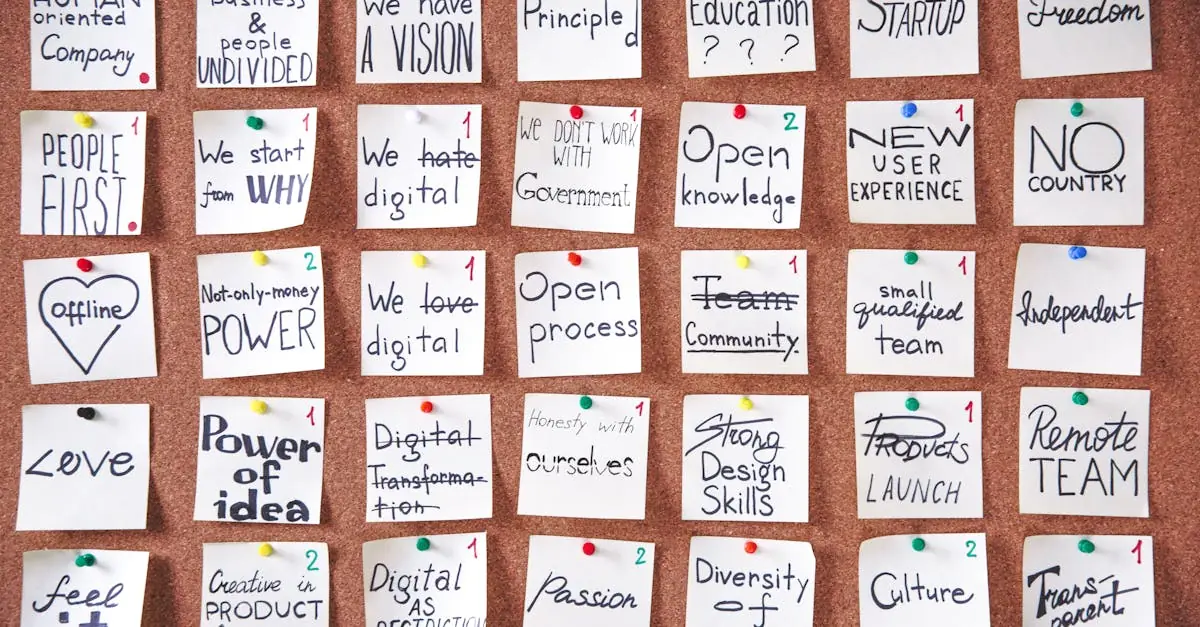 HUMAN
oriented
Company
Business
&
people
UNDIVIDED
We have
A VISION
Principled
Education
? ? ?
STARTUP
Freedom
PEOPLE
FIRST
1
We start
from WHY
1
We hate
digital
1
We DON'T WORK
WITH
Government
1
Open
knowledge
2
NEW
USER
EXPERIENCE
1
NO
COUNTRY
offline
Not-only-money
POWER
2
We love
digital
1
Open
process
Team
Community.
1
small
qualified
team
1
Independent
Love
Power
of
idea
1
Digital
Transforma-
tion
Honesty with
ourselves
1
Strong
Design
Skills
Products
LAUNCH
1
Remote
TEAM
feel
it
Creative in
PRODUCT
2
Digital
AS
RESTRICTION
1
Passion
2
Diversity
of
Culture
2
Trans-
parent
1